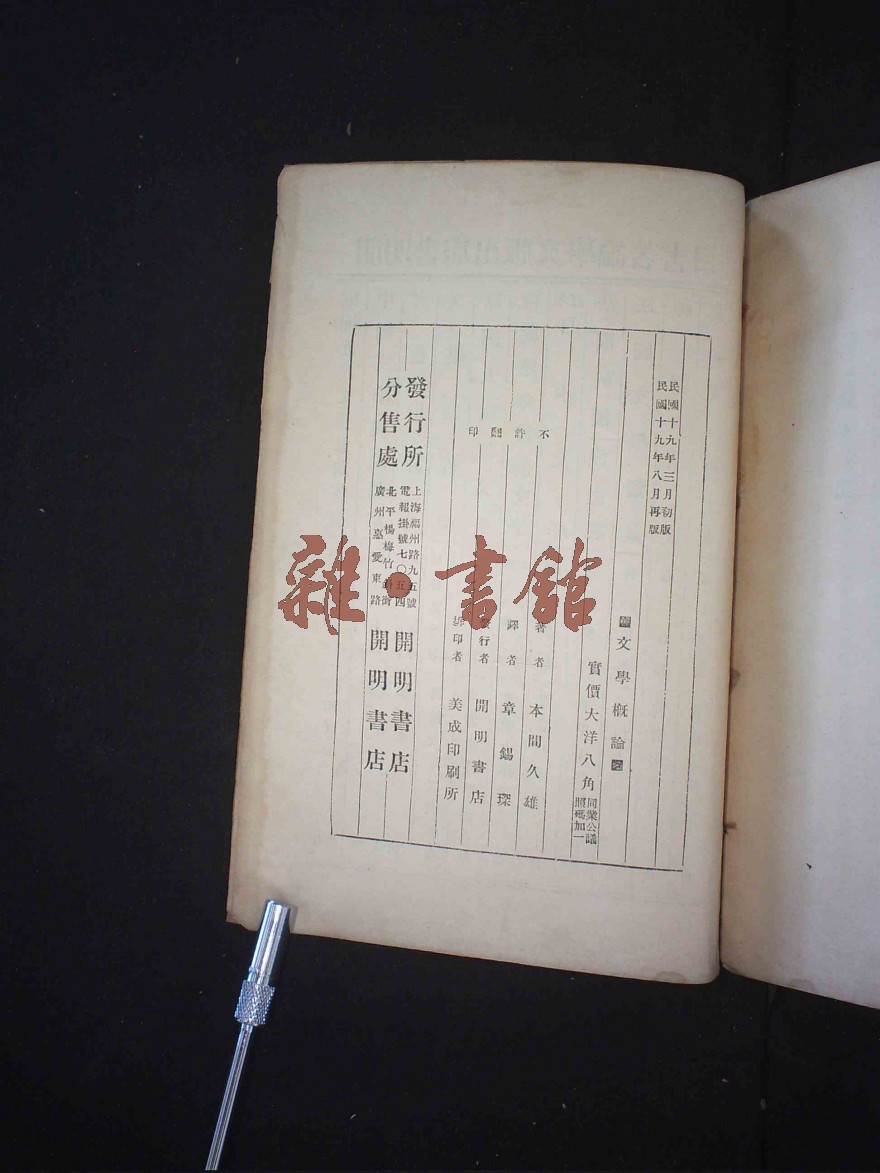 民國十九年三月初版
民國十九年八月再版
文學概論
實價大洋八角
同業公議
照碼加一
不許翻印
著者 本間久雄
譯者 章錫琛
發行者 開明書店
排印者 美成印刷所
發行所
上海福州路九五號
電報掛號七〇五四
開明書店
分售處
北平楊梅竹斜街
廣州惠愛東路
開明書店
雜·書館